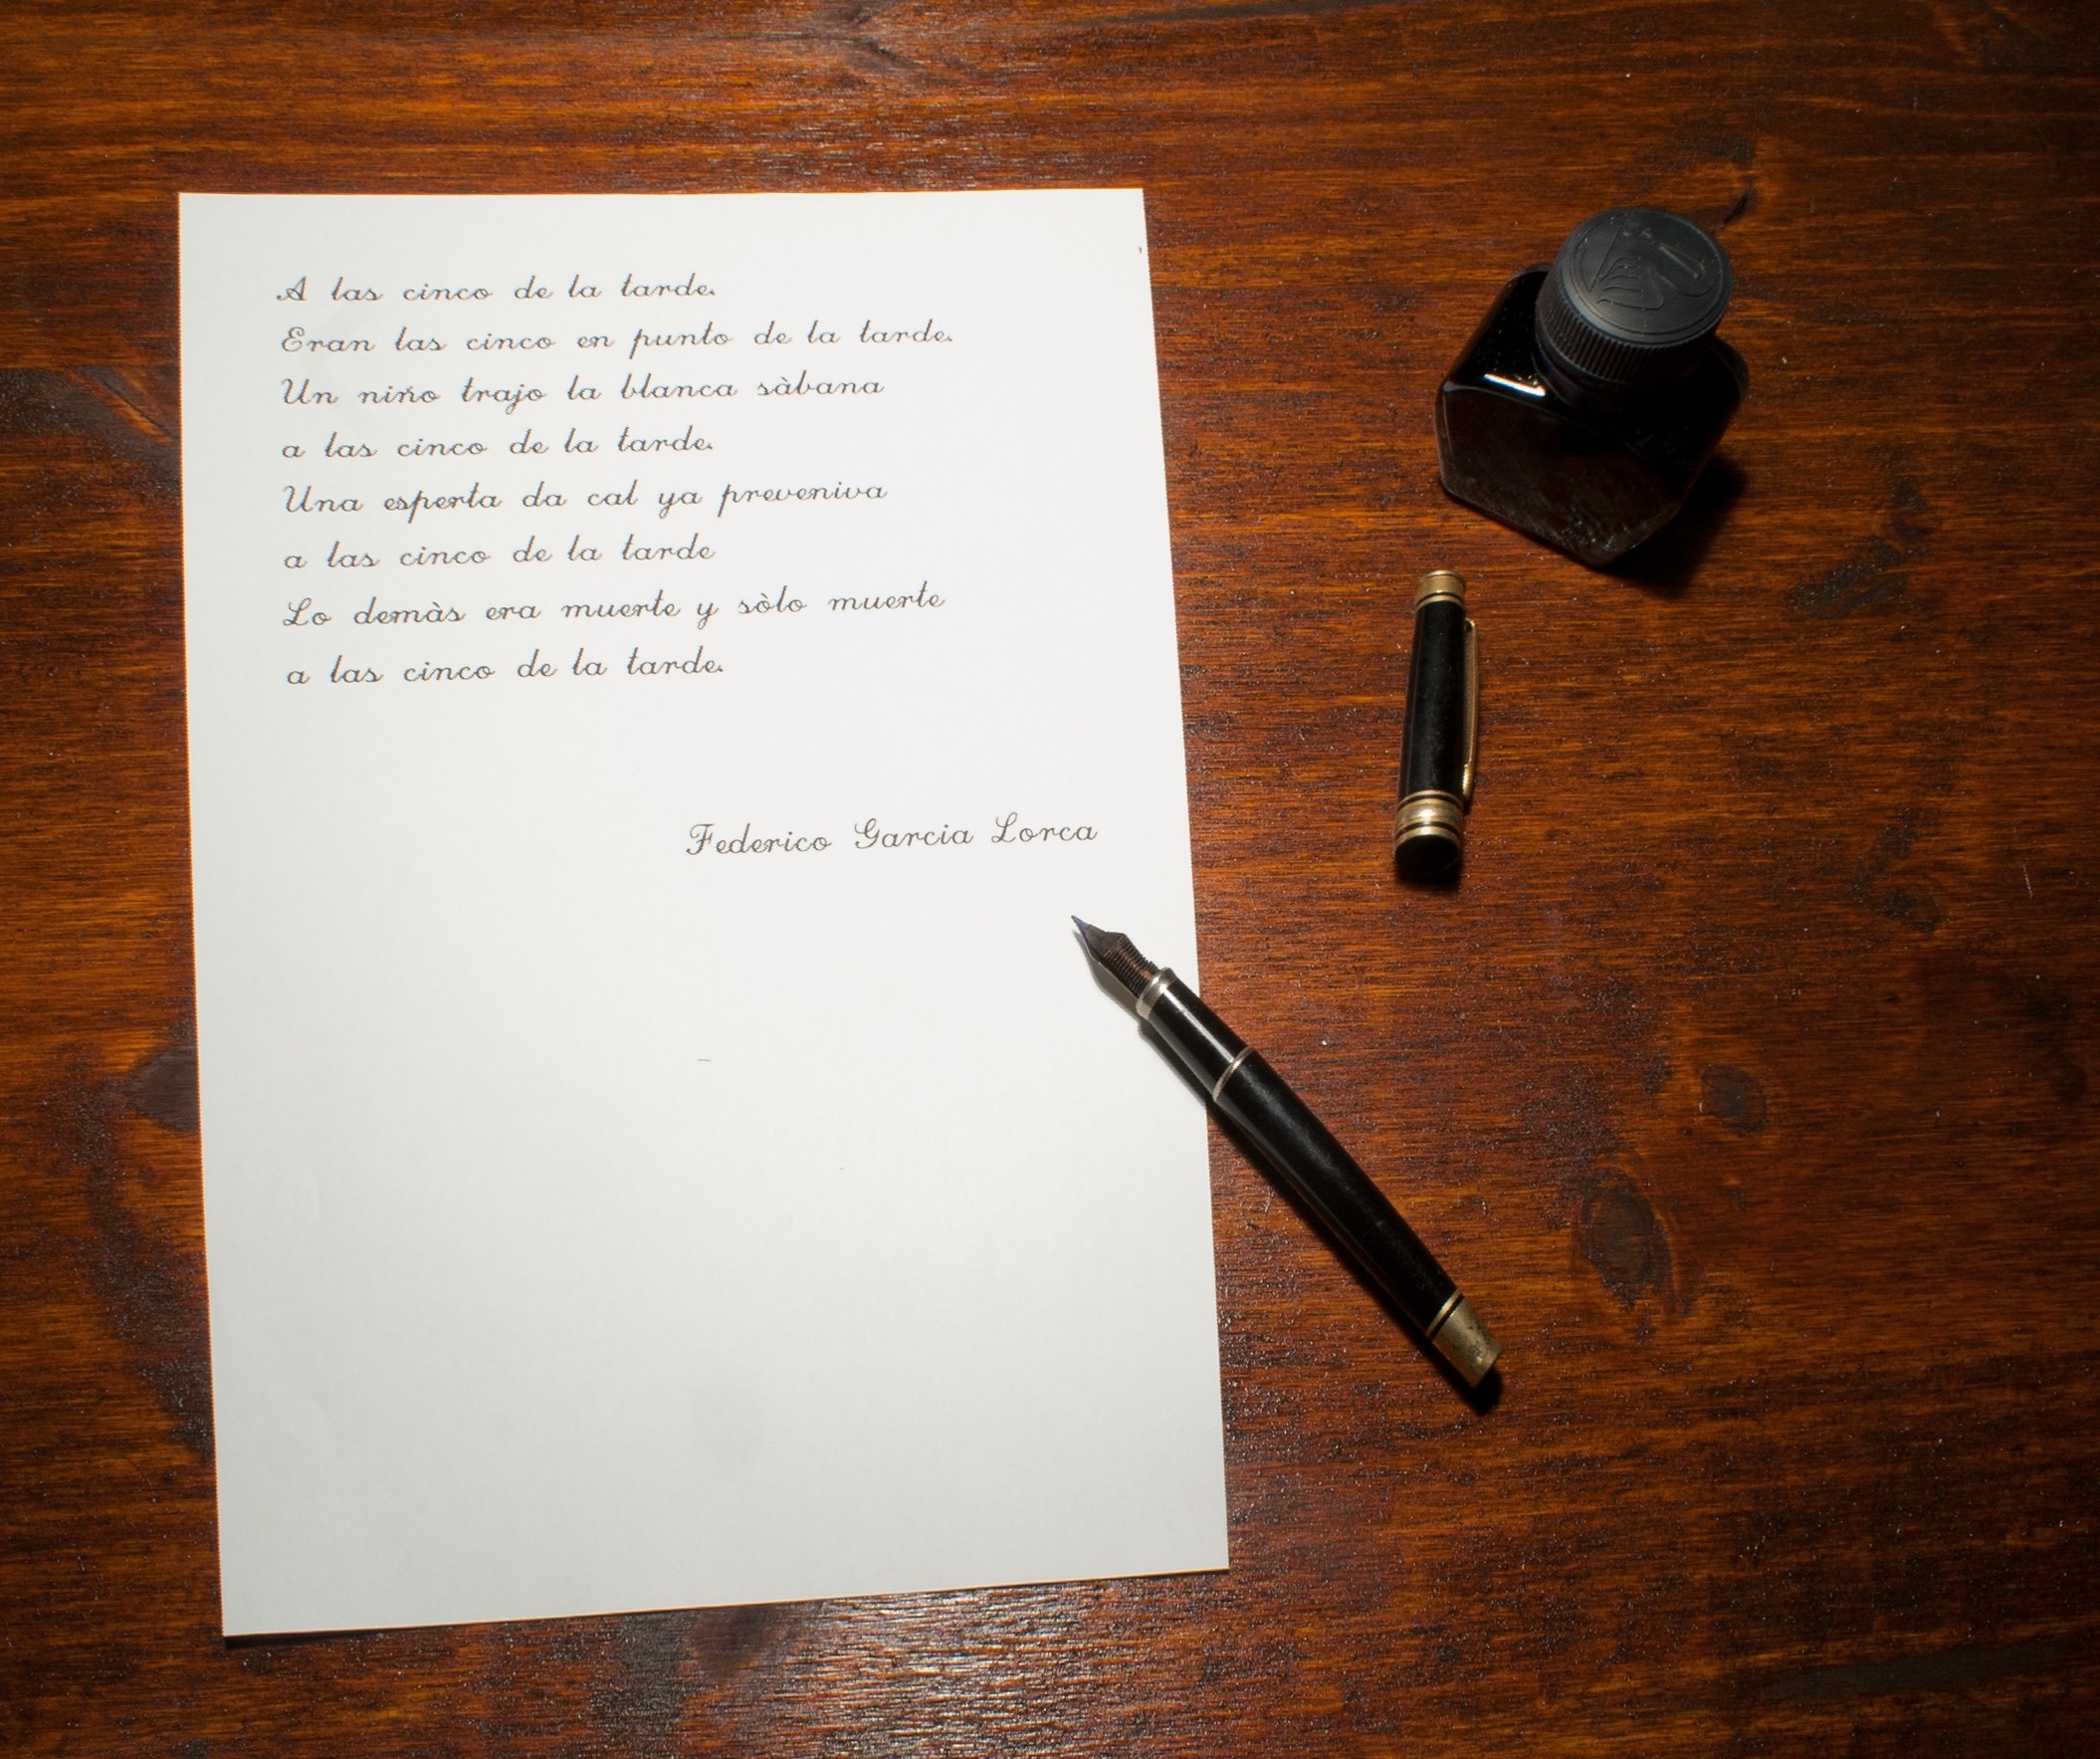 A las cinco de la tarde.
Eran las cinco en punto de la tarde.
Un niño trajo la blanca sàbana
a las cinco de la tarde.
Una esperta da cal ya preveniva
a las cinco de la tarde
Lo demàs era muerte y sòlo muerte
a las cinco de la tarde.
Federico Garcia Lorca